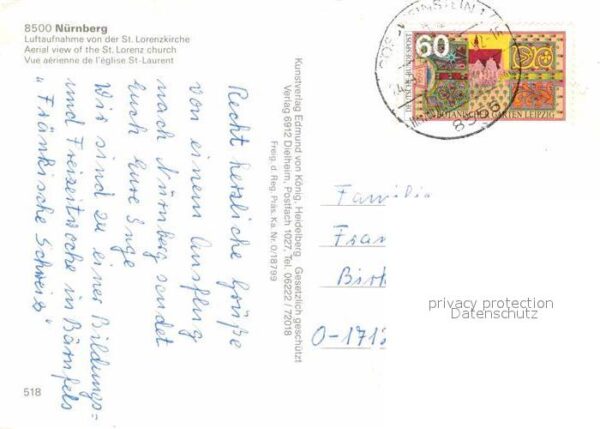 8500 Nürnberg
Luftaufnahme von der St. Lorenzkirche
Aerial view of the St. Lorenz church
Vue aérienne de l'église St-Laurent
Recht herzliche Grüße
von einem Ausflug
nach Nürnberg sendet
Euch Eure Inge
Wir sind zu einer Bildungs-
und Freizeitwoche in Bärnfels
"Fränkische Schweiz"
518
Kunstverlag Edmund von König, Heidelberg Gesetzlich geschützt
Verlag 6912 Dielheim, Postfach 1027, Tel. 06222 / 72018
Freig. d. Reg. Präs. Ka. Nr. 0/18799
60
DEUTSCHE BUNDESPOST
BOTANISCHER GARTEN LEIPZIG
Familie
Fran
Birk
O-171
privacy protection
Datenschutz